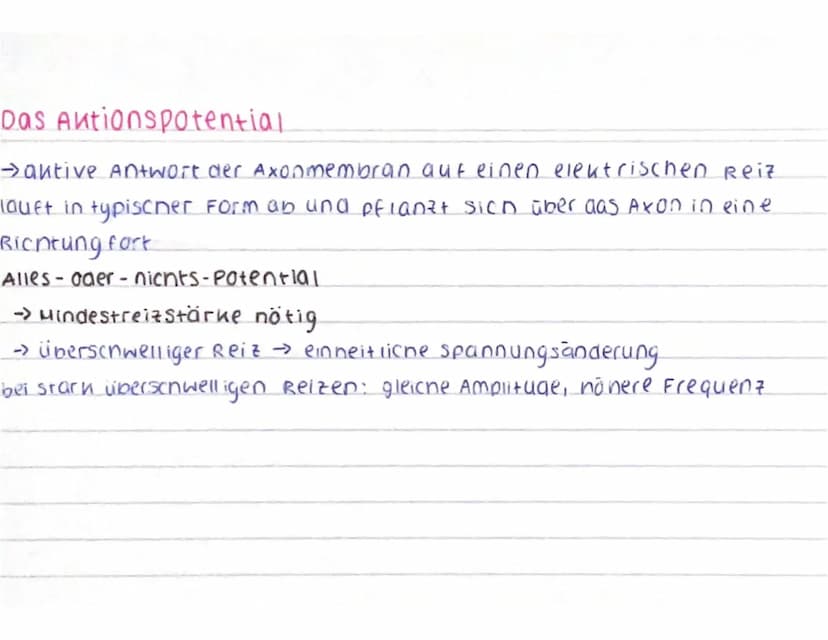 Das Aktionspotential
→ aktive Antwort der Axonmembran auf einen elektrischen Reiz
läuft in typischer Form ab und pflanzt sich über das Axon in eine
Richtung fort
Alles-oder-nichts-Potential
→ Mindestreizstärke nötig
→ überschwelliger Reiz → einheitliche Spannungsänderung
bei stark überschwelligen Reizen: gleiche Amplitude, höhere Frequenz